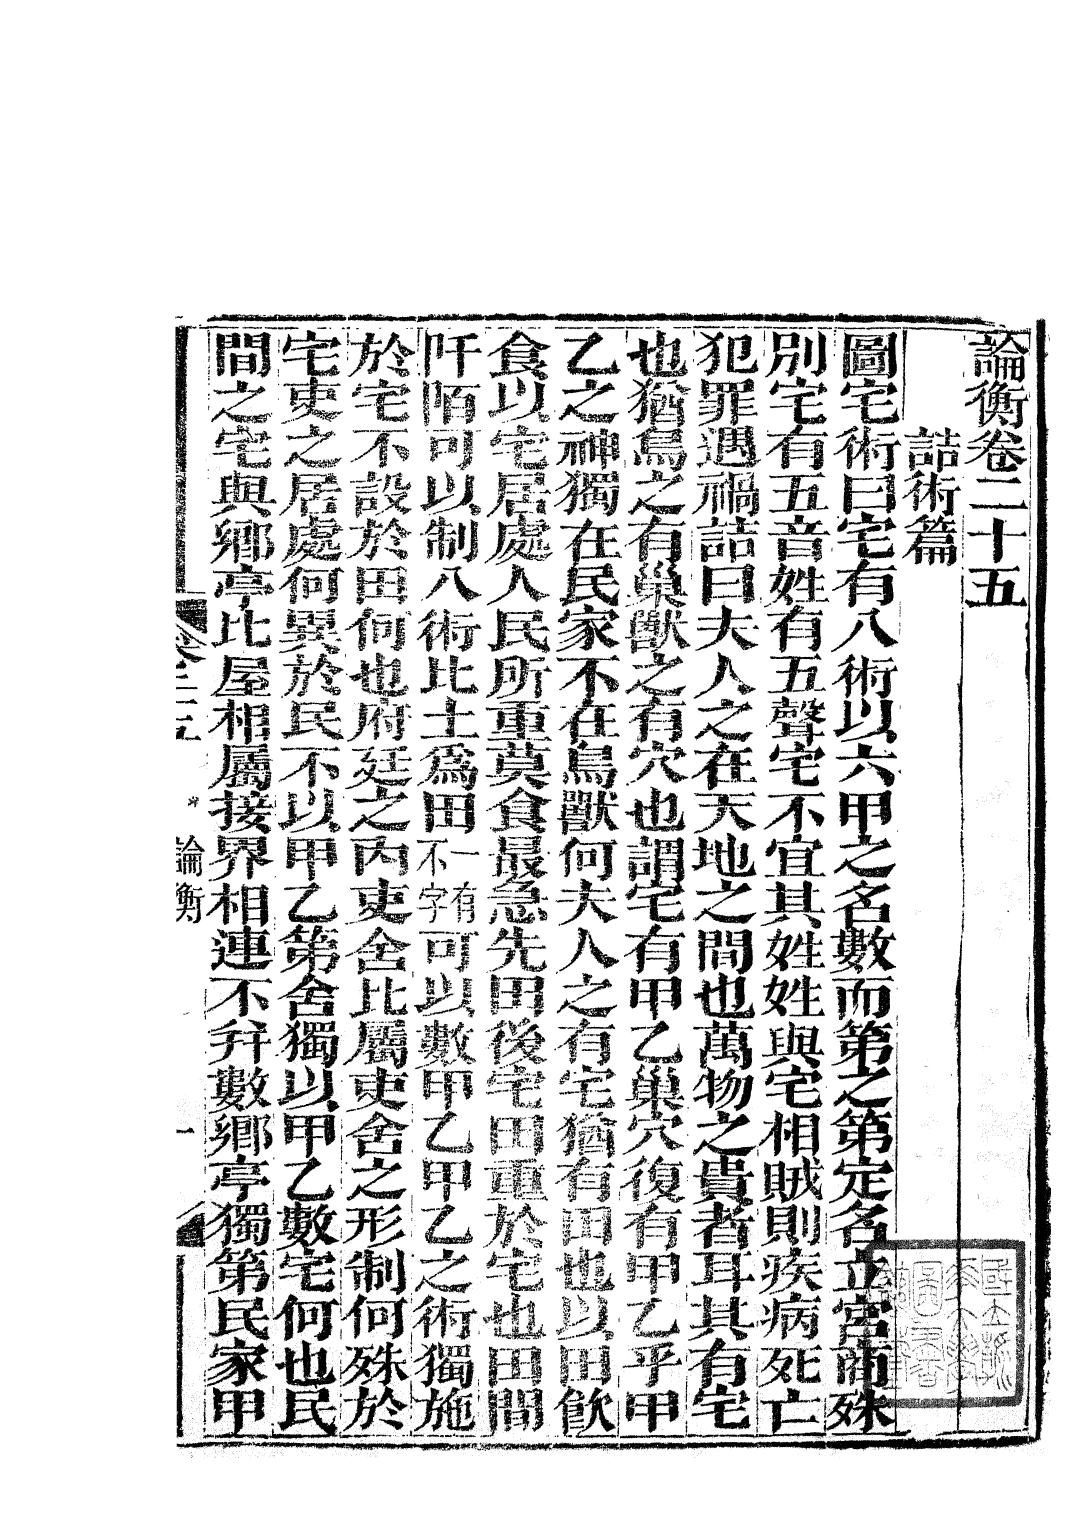 論衡卷二十五
詰術篇
圖宅術曰宅有八術以六甲之名數而第之第定名立宮商殊
別宅有五音姓有五聲宅不宜其姓姓與宅相賊則疾病死亡
犯罪遇禍詰曰夫人之在天地之間也萬物之貴者耳其有宅
也猶鳥之有巢獸之有穴也謂宅有甲乙巢穴復有甲乙乎甲
乙之神獨在民家不在鳥獸何夫人之有宅猶有田也以田飲
食以宅居處人民所重莫食最急先田後宅田重於宅也田間
阡陌可以制八術比土為田一有不字可以數甲乙甲乙之術獨施
於宅不設於田何也府廷之內吏舍比屬吏舍之形制何殊於
宅吏之居處何異於民不以甲乙第舍獨以甲乙數宅何也民
間之宅與鄉亭比屋相屬接界相連不并數鄉亭獨第民家甲
卷二十五
論衡
一